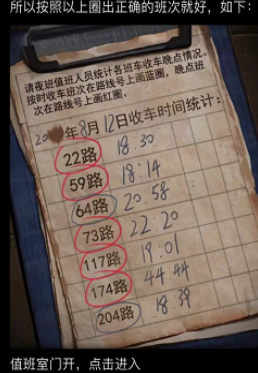 所以按照以上圈出正确的班次就好，如下：
请夜班值班人员统计各班车收车晚点情况。
按时收车班次在路线号上画蓝圈，晚点班
次在路线号上画红圈．
20 年8月12日收车时间统计：
22路 18.30
59路 18:14
64路 20.58
73路 22.20
117路 19:01
174路 44:44
204路 18.39
值班室门开，点击进入